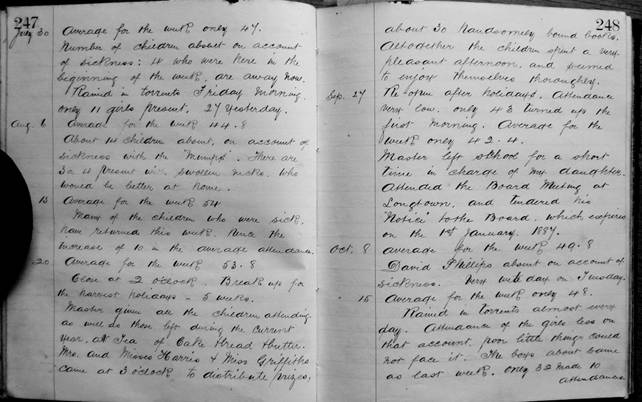 247
July 30 Average for the week only 47.
Number of children absent on account
of sickness: 4 who were here in the
beginning of the week, are away now.
Rained in torrents Friday morning,
only 11 girls present, 27 yesterday.
Aug. 6 Average for the week 44.8
About 14 children absent, on account of
sickness with the "Mumps". There are
3 or 4 present with swollen necks, who
would be better at home.
13 Average for the week 54
Many of the children who were sick
have returned this week. Hence the
increase of 10 in the average attendance.
20 Average for the week 53.8
Close at 2 o'clock. Break up for
the harvest holidays - 5 weeks.
Master gives all the children attending
as well as those left during the current
year, a Tea of Cake & bread & butter.
Mrs. and Misses Harris & Miss Griffiths
came at 3 o'clock to distribute prizes,
248
about 30 handsomely bound books.
Altogether the children spent a very
pleasant afternoon, and seemed
to enjoy themselves thoroughly.
Sep. 27 Re-open after holidays. Attendance
very low. only 43 turned up the
first morning. Average for the
week only 42.4.
Master left school for a short
time in charge of my daughter.
Attended the Board Meeting at
Longtown, and tendered his
"Notice" to the Board, which expires
on the 1st January, 1887.
Oct. 8 Average for the week 49.8
David Phillips absent on account of
sickness. Very wet day on Tuesday.
15 Average for the week only 48.
Rained in torrents almost every
day. Attendance of the girls less on
that account, poor little things could
not face it. The boys about same
as last week. only 32 made 10
attendances